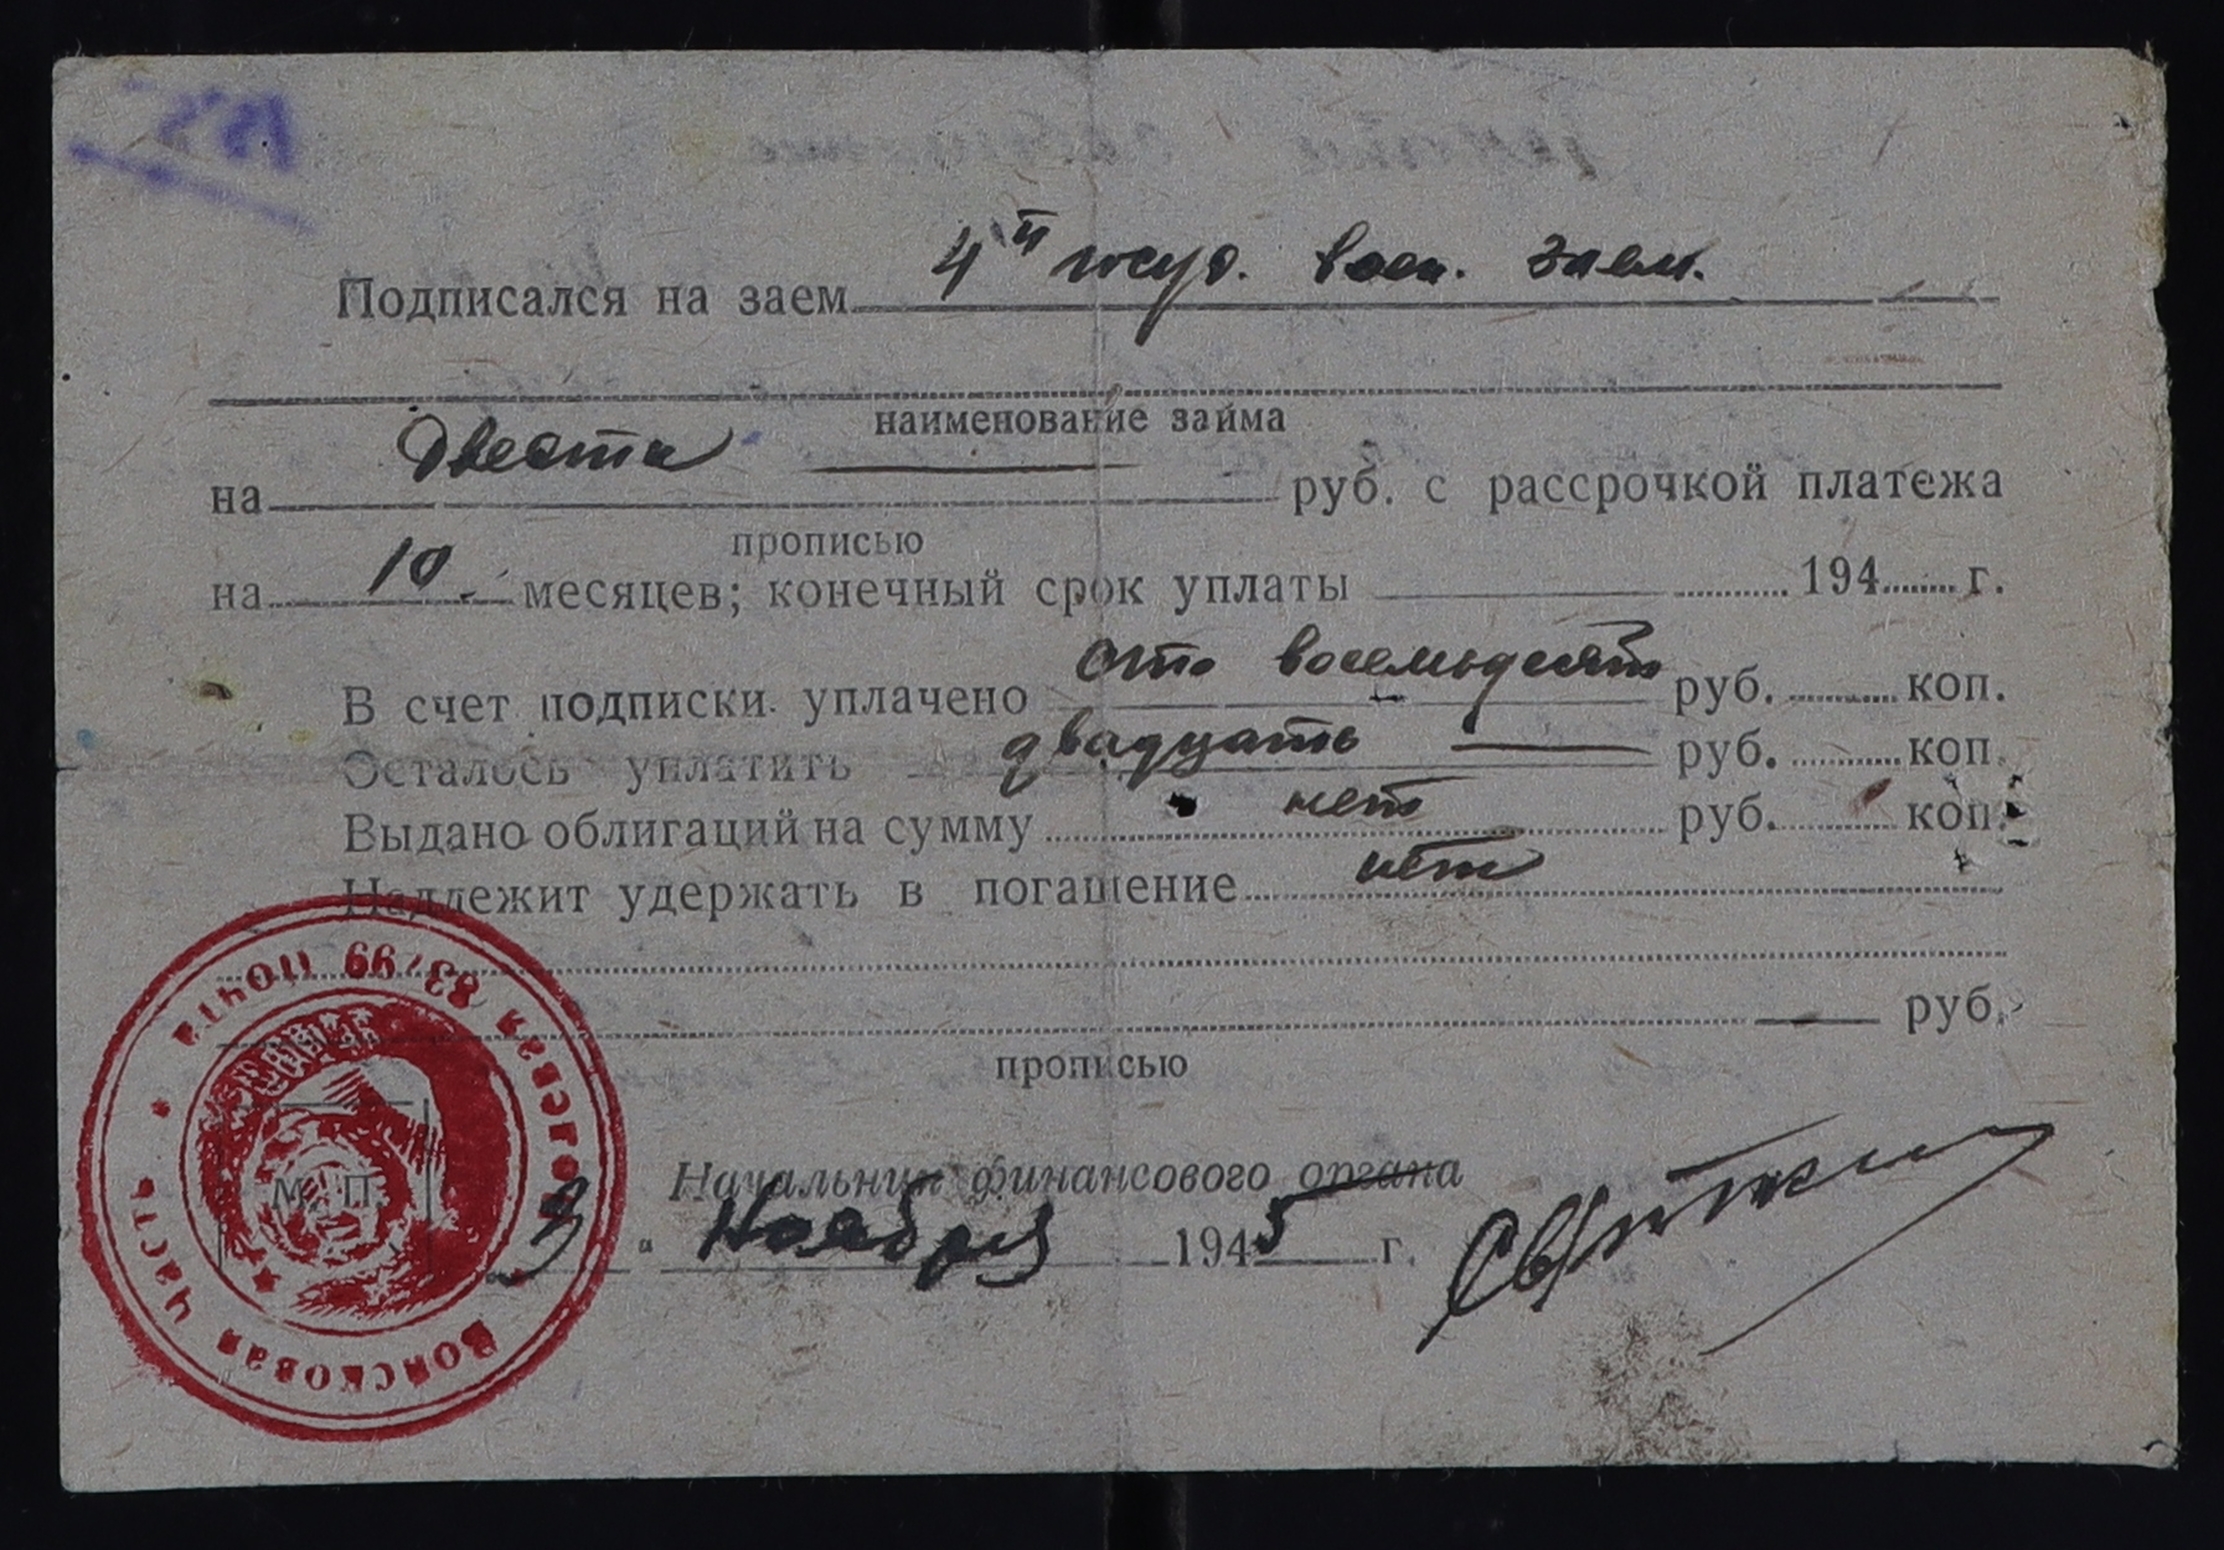 Подписался на заем 4й госуд. воен. заем.
наименование займа
на двести руб. с рассрочкой платежа
прописью
на 10 месяцев; конечный срок уплаты 194 г.
В счет подписки уплачено сто восемьдесят руб. коп.
Осталось уплатить двадцать руб. коп.
Выдано облигаций на сумму нет руб. коп.
Надлежит удержать в погашение нет
руб.
прописью
Начальник финансового органа
3 " Ноября 1945 г.
М. П.
Войсковая часть полевая почта